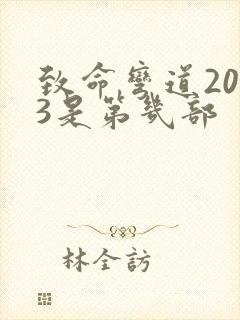 致命弯道20
3是第几部
林全訪